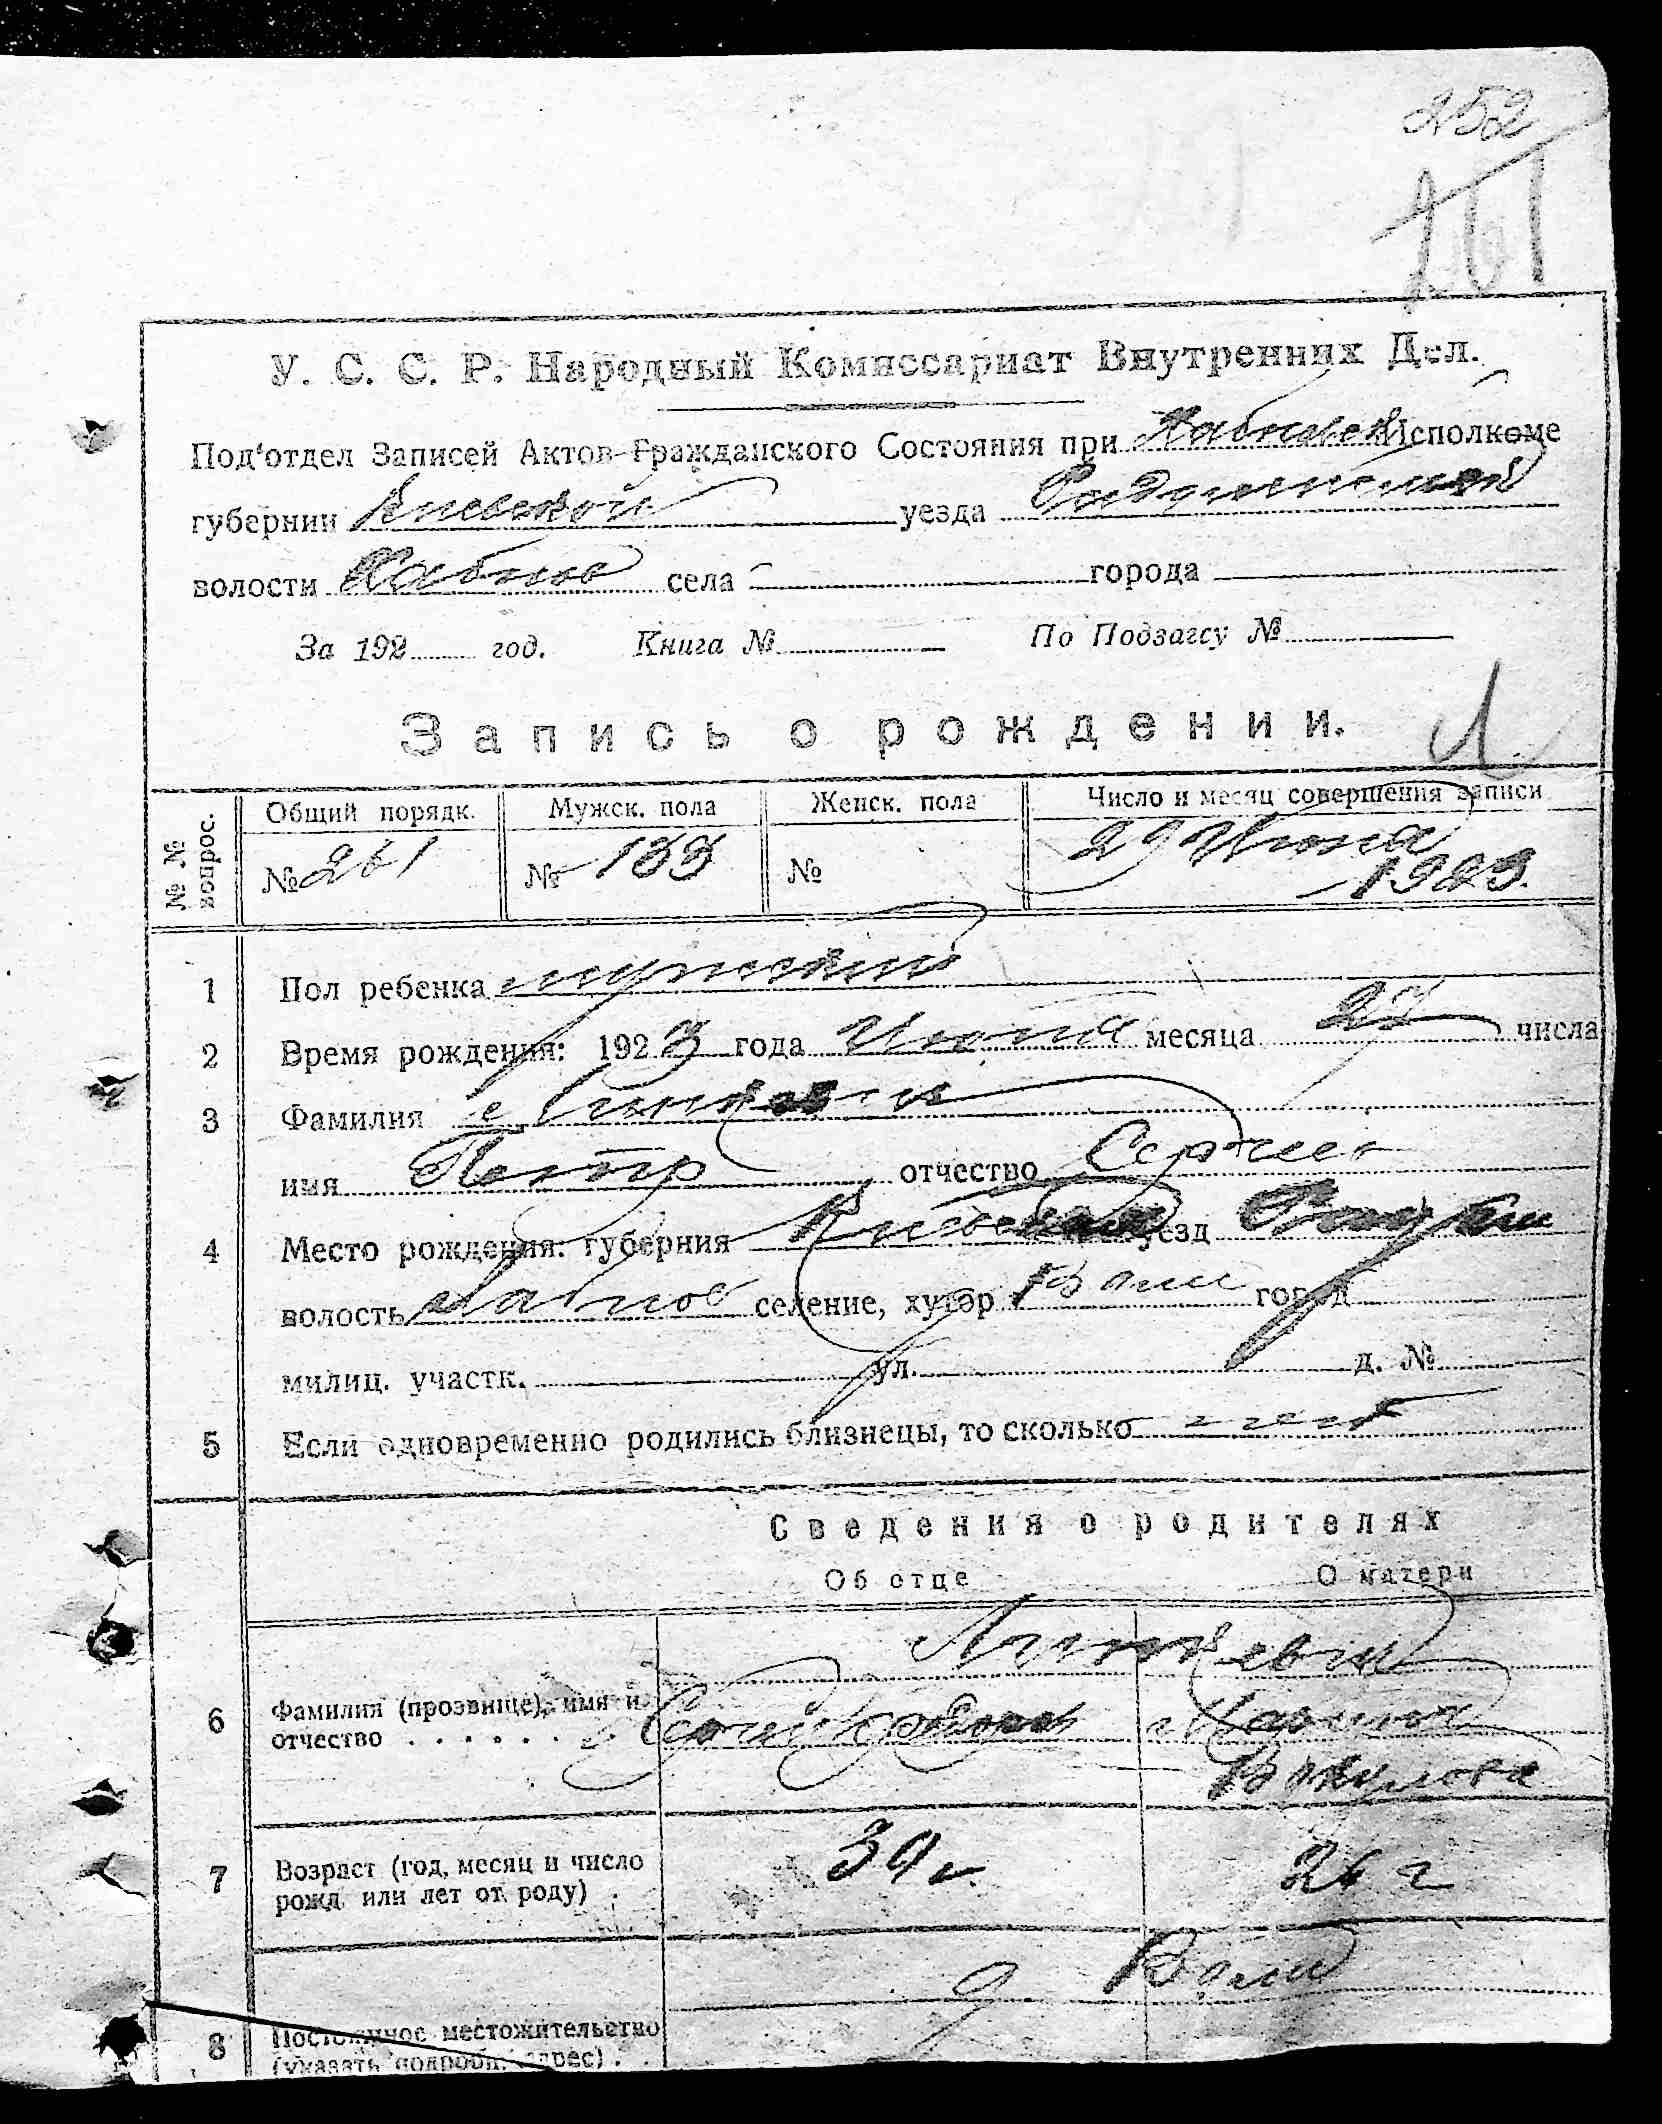 252
261
У. С. С. Р. Народный Комиссариат Внутренних Дел.
Под‘отдел Записей Актов Гражданского Состояния при Хабнаев Исполкоме
губернии Киевской уезда
волости Хабнов села города
За 192 год. Книга № По Подзагсу №
Запись о рождении.
№ № вопрос. Общий порядк. Мужск. пола Женск. пола Число и месяц совершения записи
№ 261 № 133 № 29 Июня 1923.
1 Пол ребенка мужской
2 Время рождения: 1923 года Июня месяца 27 числа
3 Фамилия
имя Петр отчество Сергеев
4 Место рождения: губерния Киевская уезд
волость Хабное селение, хутор город
милиц. участк. ул. д. №
5 Если одновременно родились близнецы, то сколько нет
Сведения о родителях
Об отце О матери
6 Фамилия (прозвище), имя и
отчество . . . . . .
Марина
Вакулова
7 Возраст (год, месяц и число
рожд. или лет от роду) . 39 г. 26 г
8 Постоянное местожительство
(указать подробн. адрес) .